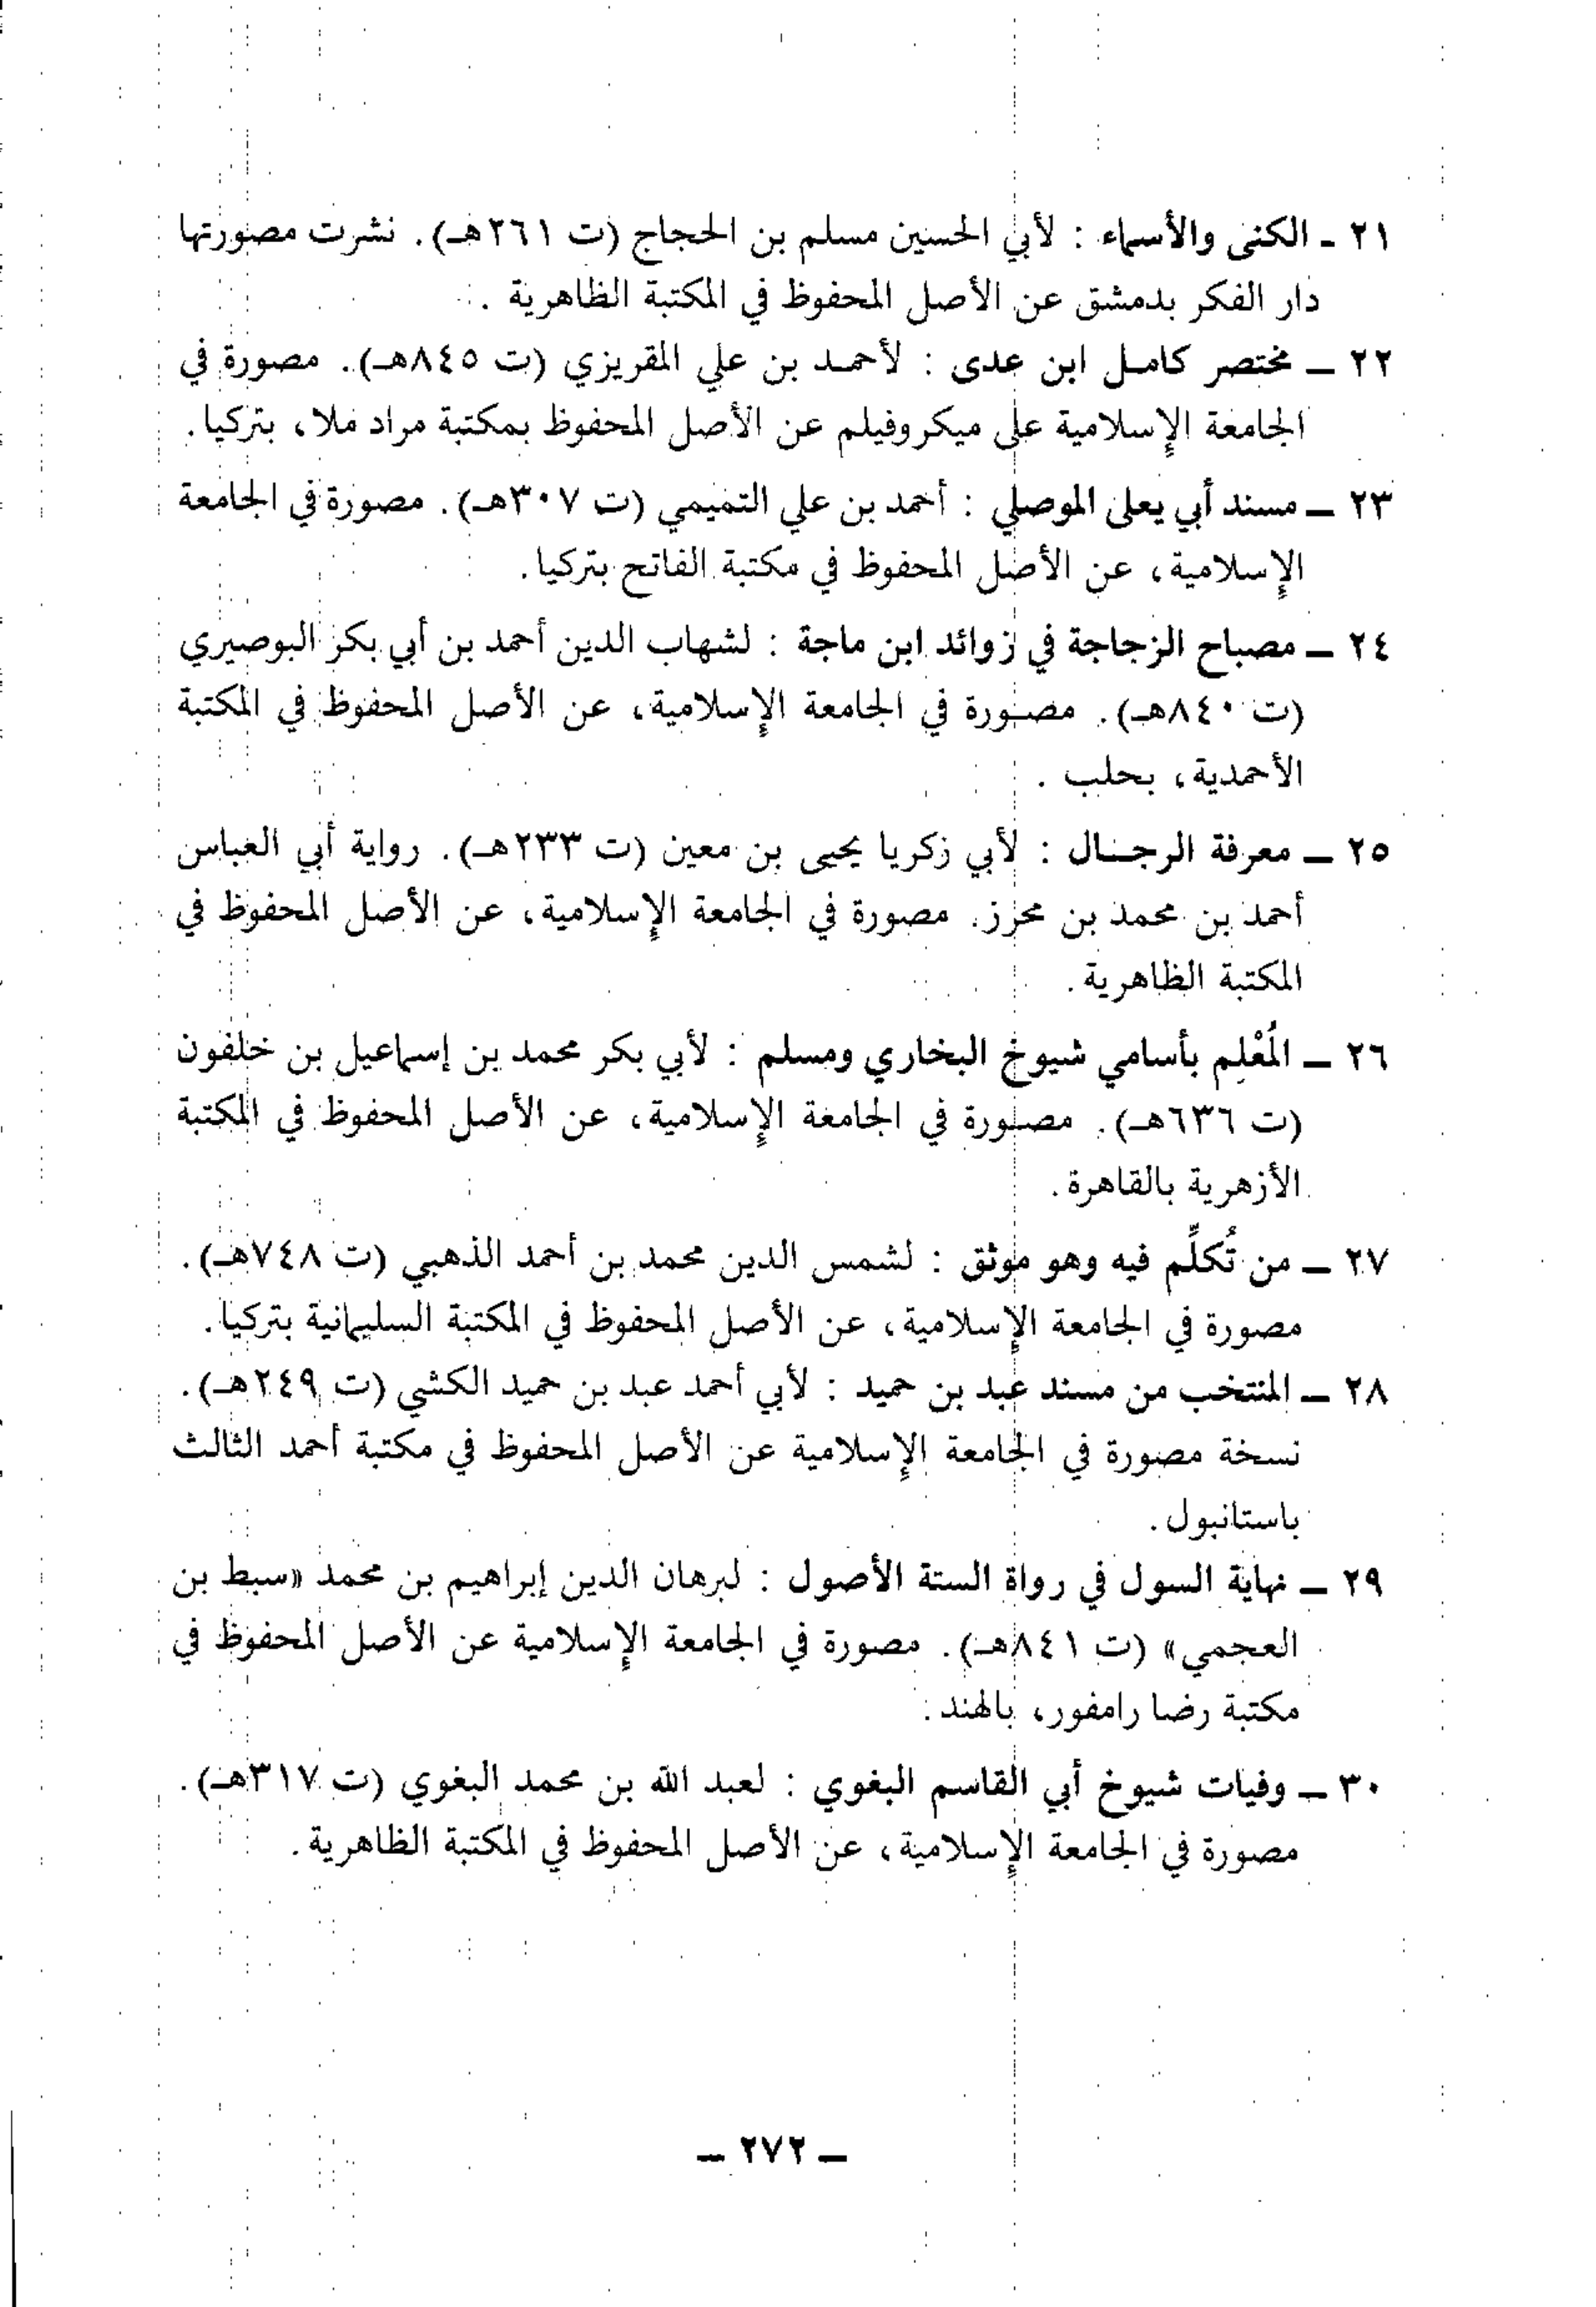 ٢١ ـ الكنى والأسماء : لأبي الحسين مسلم بن الحجاج (ت ٢٦١هـ). نشرت مصورتها
دار الفكر بدمشق عن الأصل المحفوظ في المكتبة الظاهرية .
٢٢ ـ مختصر كامل ابن عدى : لأحمد بن علي المقريزي (ت ٨٤٥هـ). مصورة في
الجامعة الإسلامية على ميكروفيلم عن الأصل المحفوظ بمكتبة مراد ملا، بتركيا.
٢٣ ـ مسند أبي يعلى الموصلي : أحمد بن علي التميمي (ت ٣٠٧هـ). مصورة في الجامعة
الإسلامية، عن الأصل المحفوظ في مكتبة الفاتح بتركيا.
٢٤ ـ مصباح الزجاجة في زوائد ابن ماجة : لشهاب الدين أحمد بن أبي بكر البوصيري
(ت ٨٤٠هـ). مصورة في الجامعة الإسلامية، عن الأصل المحفوظ في المكتبة
الأحمدية، بحلب .
٢٥ ـ معرفة الرجال : لأبي زكريا يحيى بن معين (ت ٢٣٣هـ). رواية أبي العباس
أحمد بن محمد بن محرز. مصورة في الجامعة الإسلامية، عن الأصل المحفوظ في
المكتبة الظاهرية.
٢٦ ـ المُعْلِم بأسامي شيوخ البخاري ومسلم : لأبي بكر محمد بن إسماعيل بن خلفون
(ت ٦٣٦هـ). مصورة في الجامعة الإسلامية، عن الأصل المحفوظ في المكتبة
الأزهرية بالقاهرة.
٢٧ ـ من تُكلِّم فيه وهو موثق : لشمس الدين محمد بن أحمد الذهبي (ت ٧٤٨هـ).
مصورة في الجامعة الإسلامية، عن الأصل المحفوظ في المكتبة السليمانية بتركيا.
٢٨ ـ المنتخب من مسند عبد بن حميد : لأبي أحمد عبد بن حميد الكشي (ت ٢٤٩هـ).
نسخة مصورة في الجامعة الإسلامية عن الأصل المحفوظ في مكتبة أحمد الثالث
باستانبول.
٢٩ ـ نهاية السول في رواة الستة الأصول : لبرهان الدين إبراهيم بن محمد «سبط بن
العجمي» (ت ٨٤١هـ). مصورة في الجامعة الإسلامية عن الأصل المحفوظ في
مكتبة رضا رامفور، بالهند.
٣٠ ـ وفيات شيوخ أبي القاسم البغوي : لعبد الله بن محمد البغوي (ت ٣١٧هـ).
مصورة في الجامعة الإسلامية، عن الأصل المحفوظ في المكتبة الظاهرية.
ـ ٢٧٢ ـ